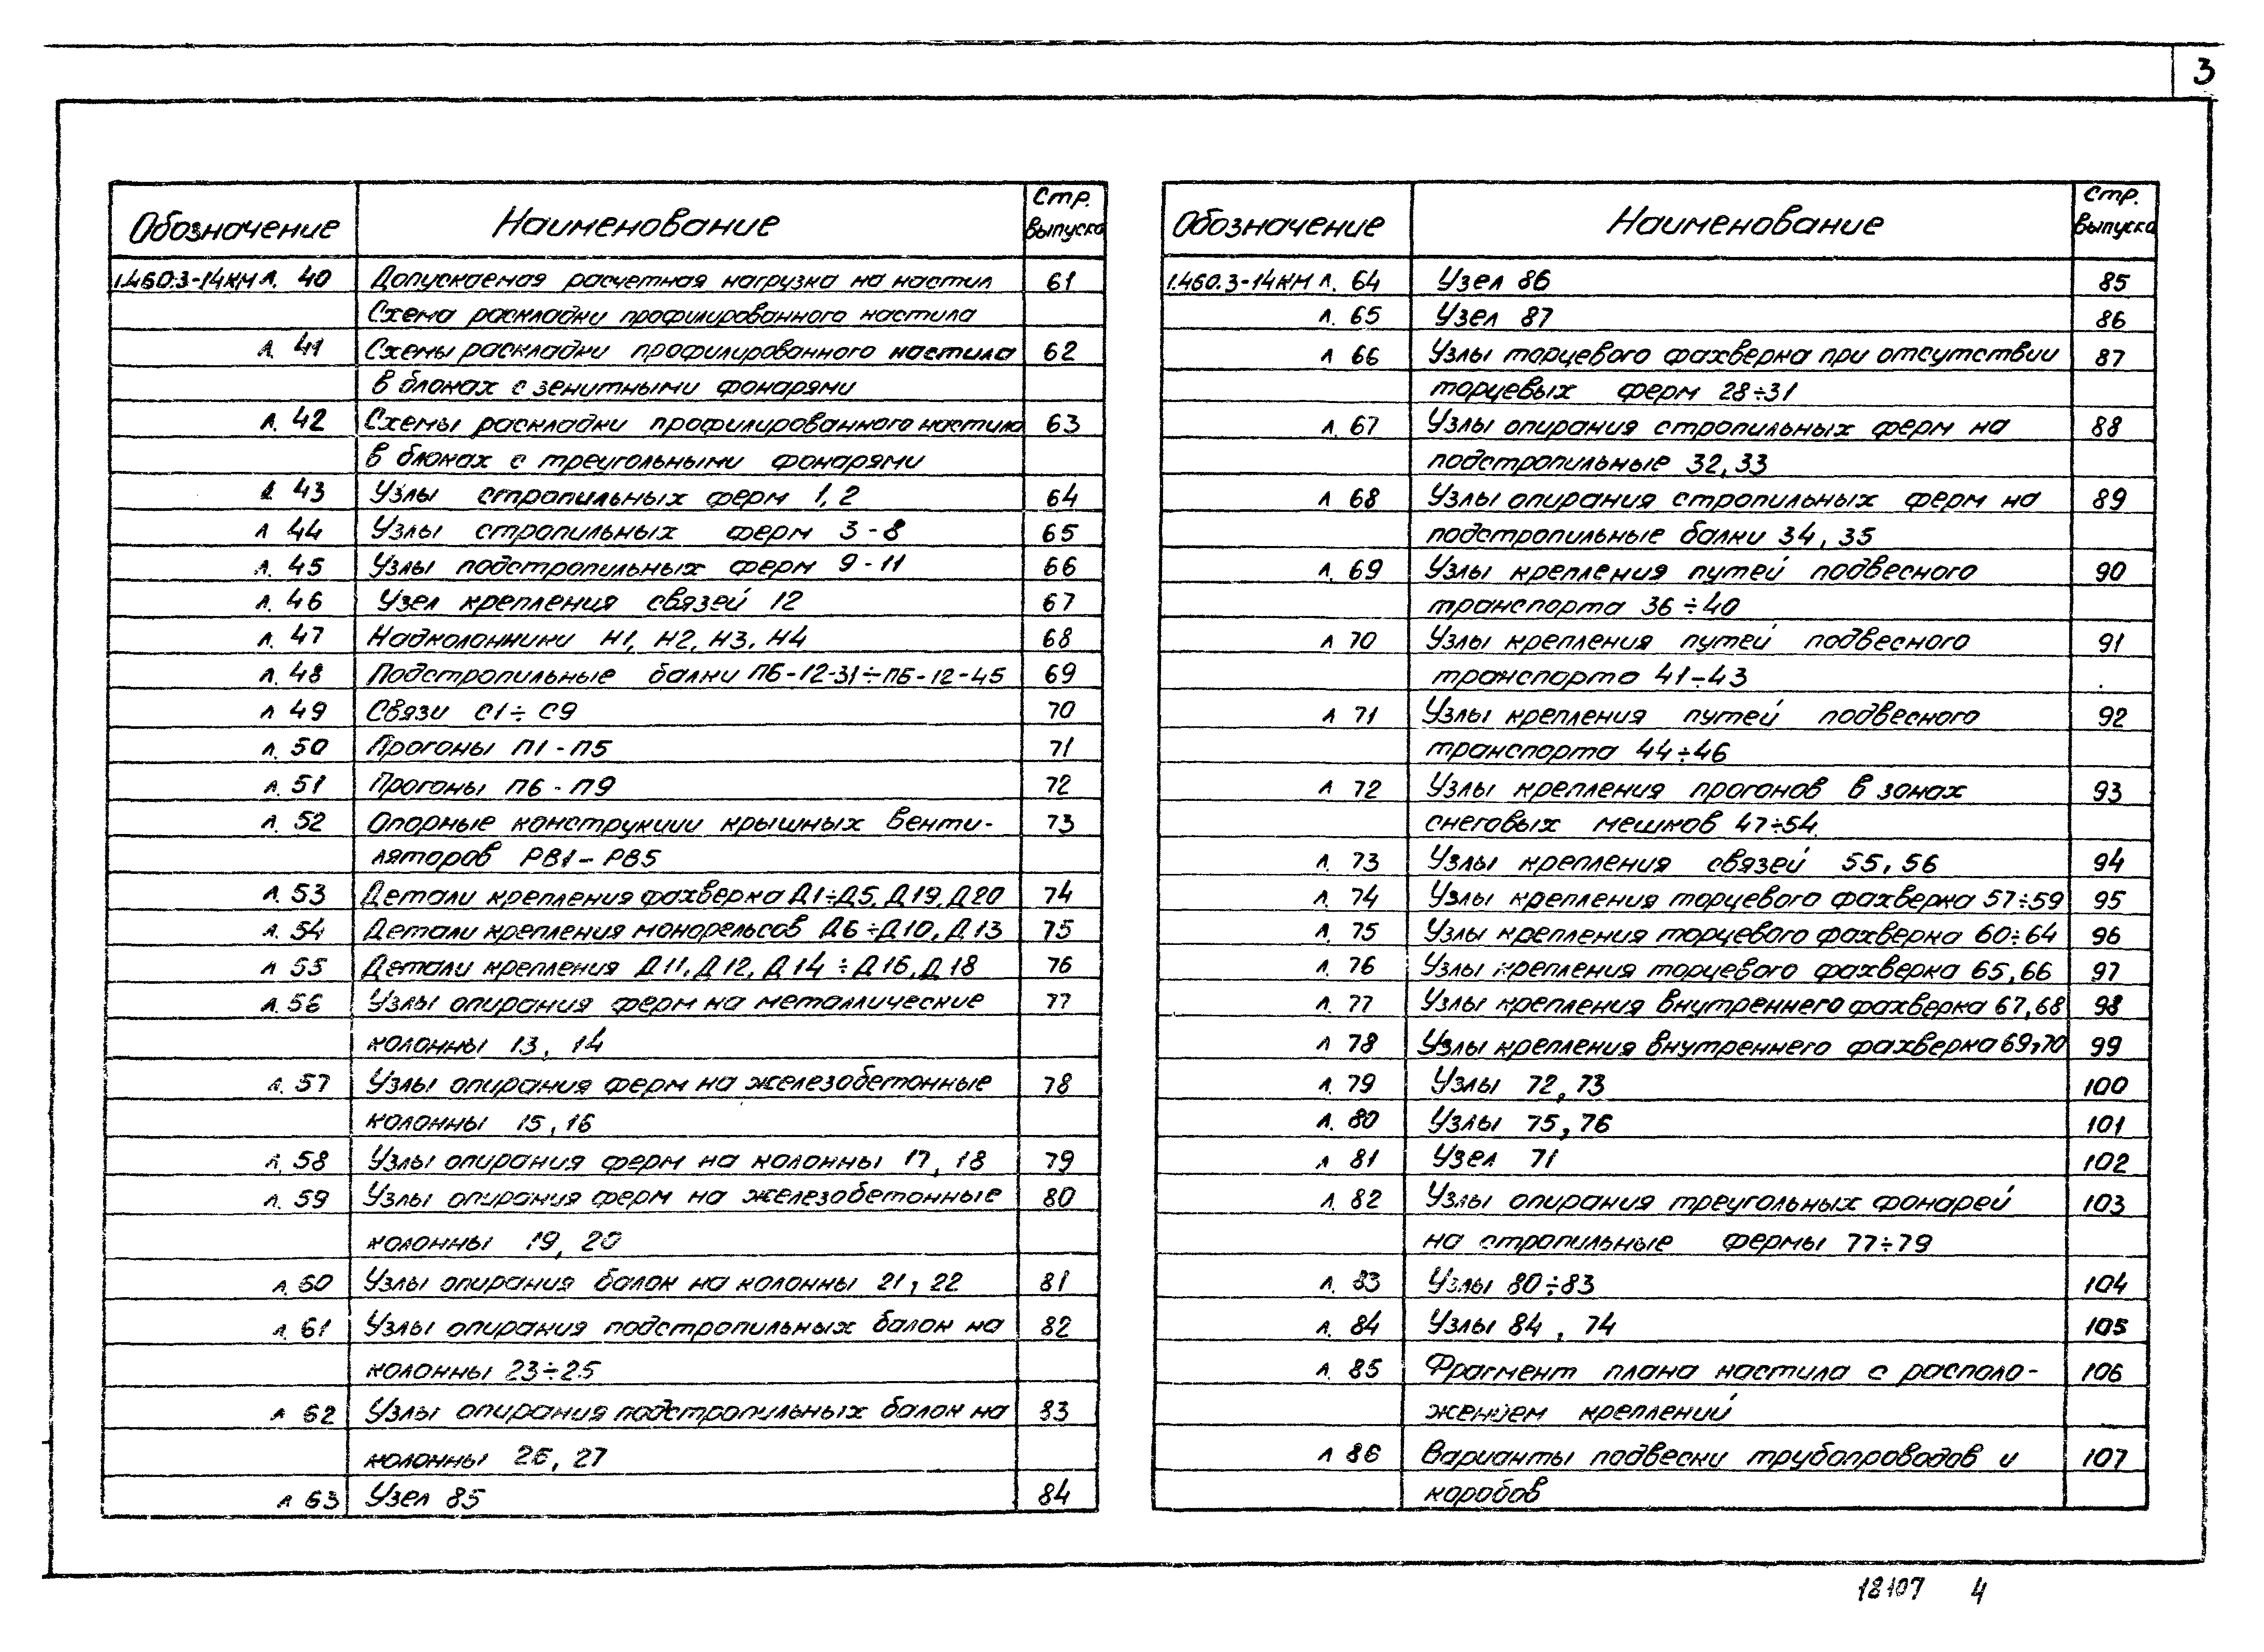 3
Обозначение Наименование Стр. выпуска
1.460.3-14КМ Л. 40 Допускаемая расчетная нагрузка на настил 61
Схема раскладки профилированного настила
Л. 41 Схемы раскладки профилированного настила 62
в блоках с зенитными фонарями
Л. 42 Схемы раскладки профилированного настила 63
в блоках с треугольными фонарями
Л 43 Узлы стропильных ферм 1, 2 64
Л 44 Узлы стропильных ферм 3-8 65
Л. 45 Узлы подстропильных ферм 9-11 66
Л. 46 Узел крепления связей 12 67
Л. 47 Надколонники Н1, Н2, Н3, Н4 68
Л. 48 Подстропильные балки ПБ-12-31÷ПБ-12-45 69
Л 49 Связи С1÷С9 70
Л. 50 Прогоны П1-П5 71
Л. 51 Прогоны П6-П9 72
Л. 52 Опорные конструкции крышных венти- 73
ляторов РВ1-РВ5
Л. 53 Детали крепления фахверка Д1÷Д5, Д19, Д20 74
Л. 54 Детали крепления монорельсов Д6÷Д10, Д13 75
Л 55 Детали крепления Д11, Д12, Д14÷Д16, Д18 76
Л. 56 Узлы опирания ферм на металлические 77
колонны 13, 14
Л. 57 Узлы опирания ферм на железобетонные 78
колонны 15, 16
Л. 58 Узлы опирания ферм на колонны 17, 18 79
Л. 59 Узлы опирания ферм на железобетонные 80
колонны 19, 20
Л. 60 Узлы опирания балок на колонны 21, 22 81
Л. 61 Узлы опирания подстропильных балок на 82
колонны 23÷25
Л 62 Узлы опирания подстропильных балок на 83
колонны 26, 27
Л 63 Узел 85 84
Обозначение Наименование Стр. выпуска
1.460.3-14КМ Л. 64 Узел 86 85
Л. 65 Узел 87 86
Л 66 Узлы торцевого фахверка при отсутствии 87
торцевых ферм 28÷31
Л. 67 Узлы опирания стропильных ферм на 88
подстропильные 32, 33
Л 68 Узлы опирания стропильных ферм на 89
подстропильные балки 34, 35
Л. 69 Узлы крепления путей подвесного 90
транспорта 36÷40
Л 70 Узлы крепления путей подвесного 91
транспорта 41÷43
Л 71 Узлы крепления путей подвесного 92
транспорта 44÷46
Л 72 Узлы крепления прогонов в зонах 93
снеговых мешков 47÷54
Л. 73 Узлы крепления связей 55, 56 94
Л. 74 Узлы крепления торцевого фахверка 57÷59 95
Л. 75 Узлы крепления торцевого фахверка 60÷64 96
Л. 76 Узлы крепления торцевого фахверка 65, 66 97
Л. 77 Узлы крепления внутреннего фахверка 67, 68 98
Л 78 Узлы крепления внутреннего фахверка 69, 70 99
Л. 79 Узлы 72, 73 100
Л. 80 Узлы 75, 76 101
Л 81 Узел 71 102
Л. 82 Узлы опирания треугольных фонарей 103
на стропильные фермы 77÷79
Л. 83 Узлы 80÷83 104
Л. 84 Узлы 84, 74 105
Л. 85 Фрагмент плана настила с располо- 106
жением креплений
Л 86 Варианты подвески трубопроводов и 107
коробов
18107 4